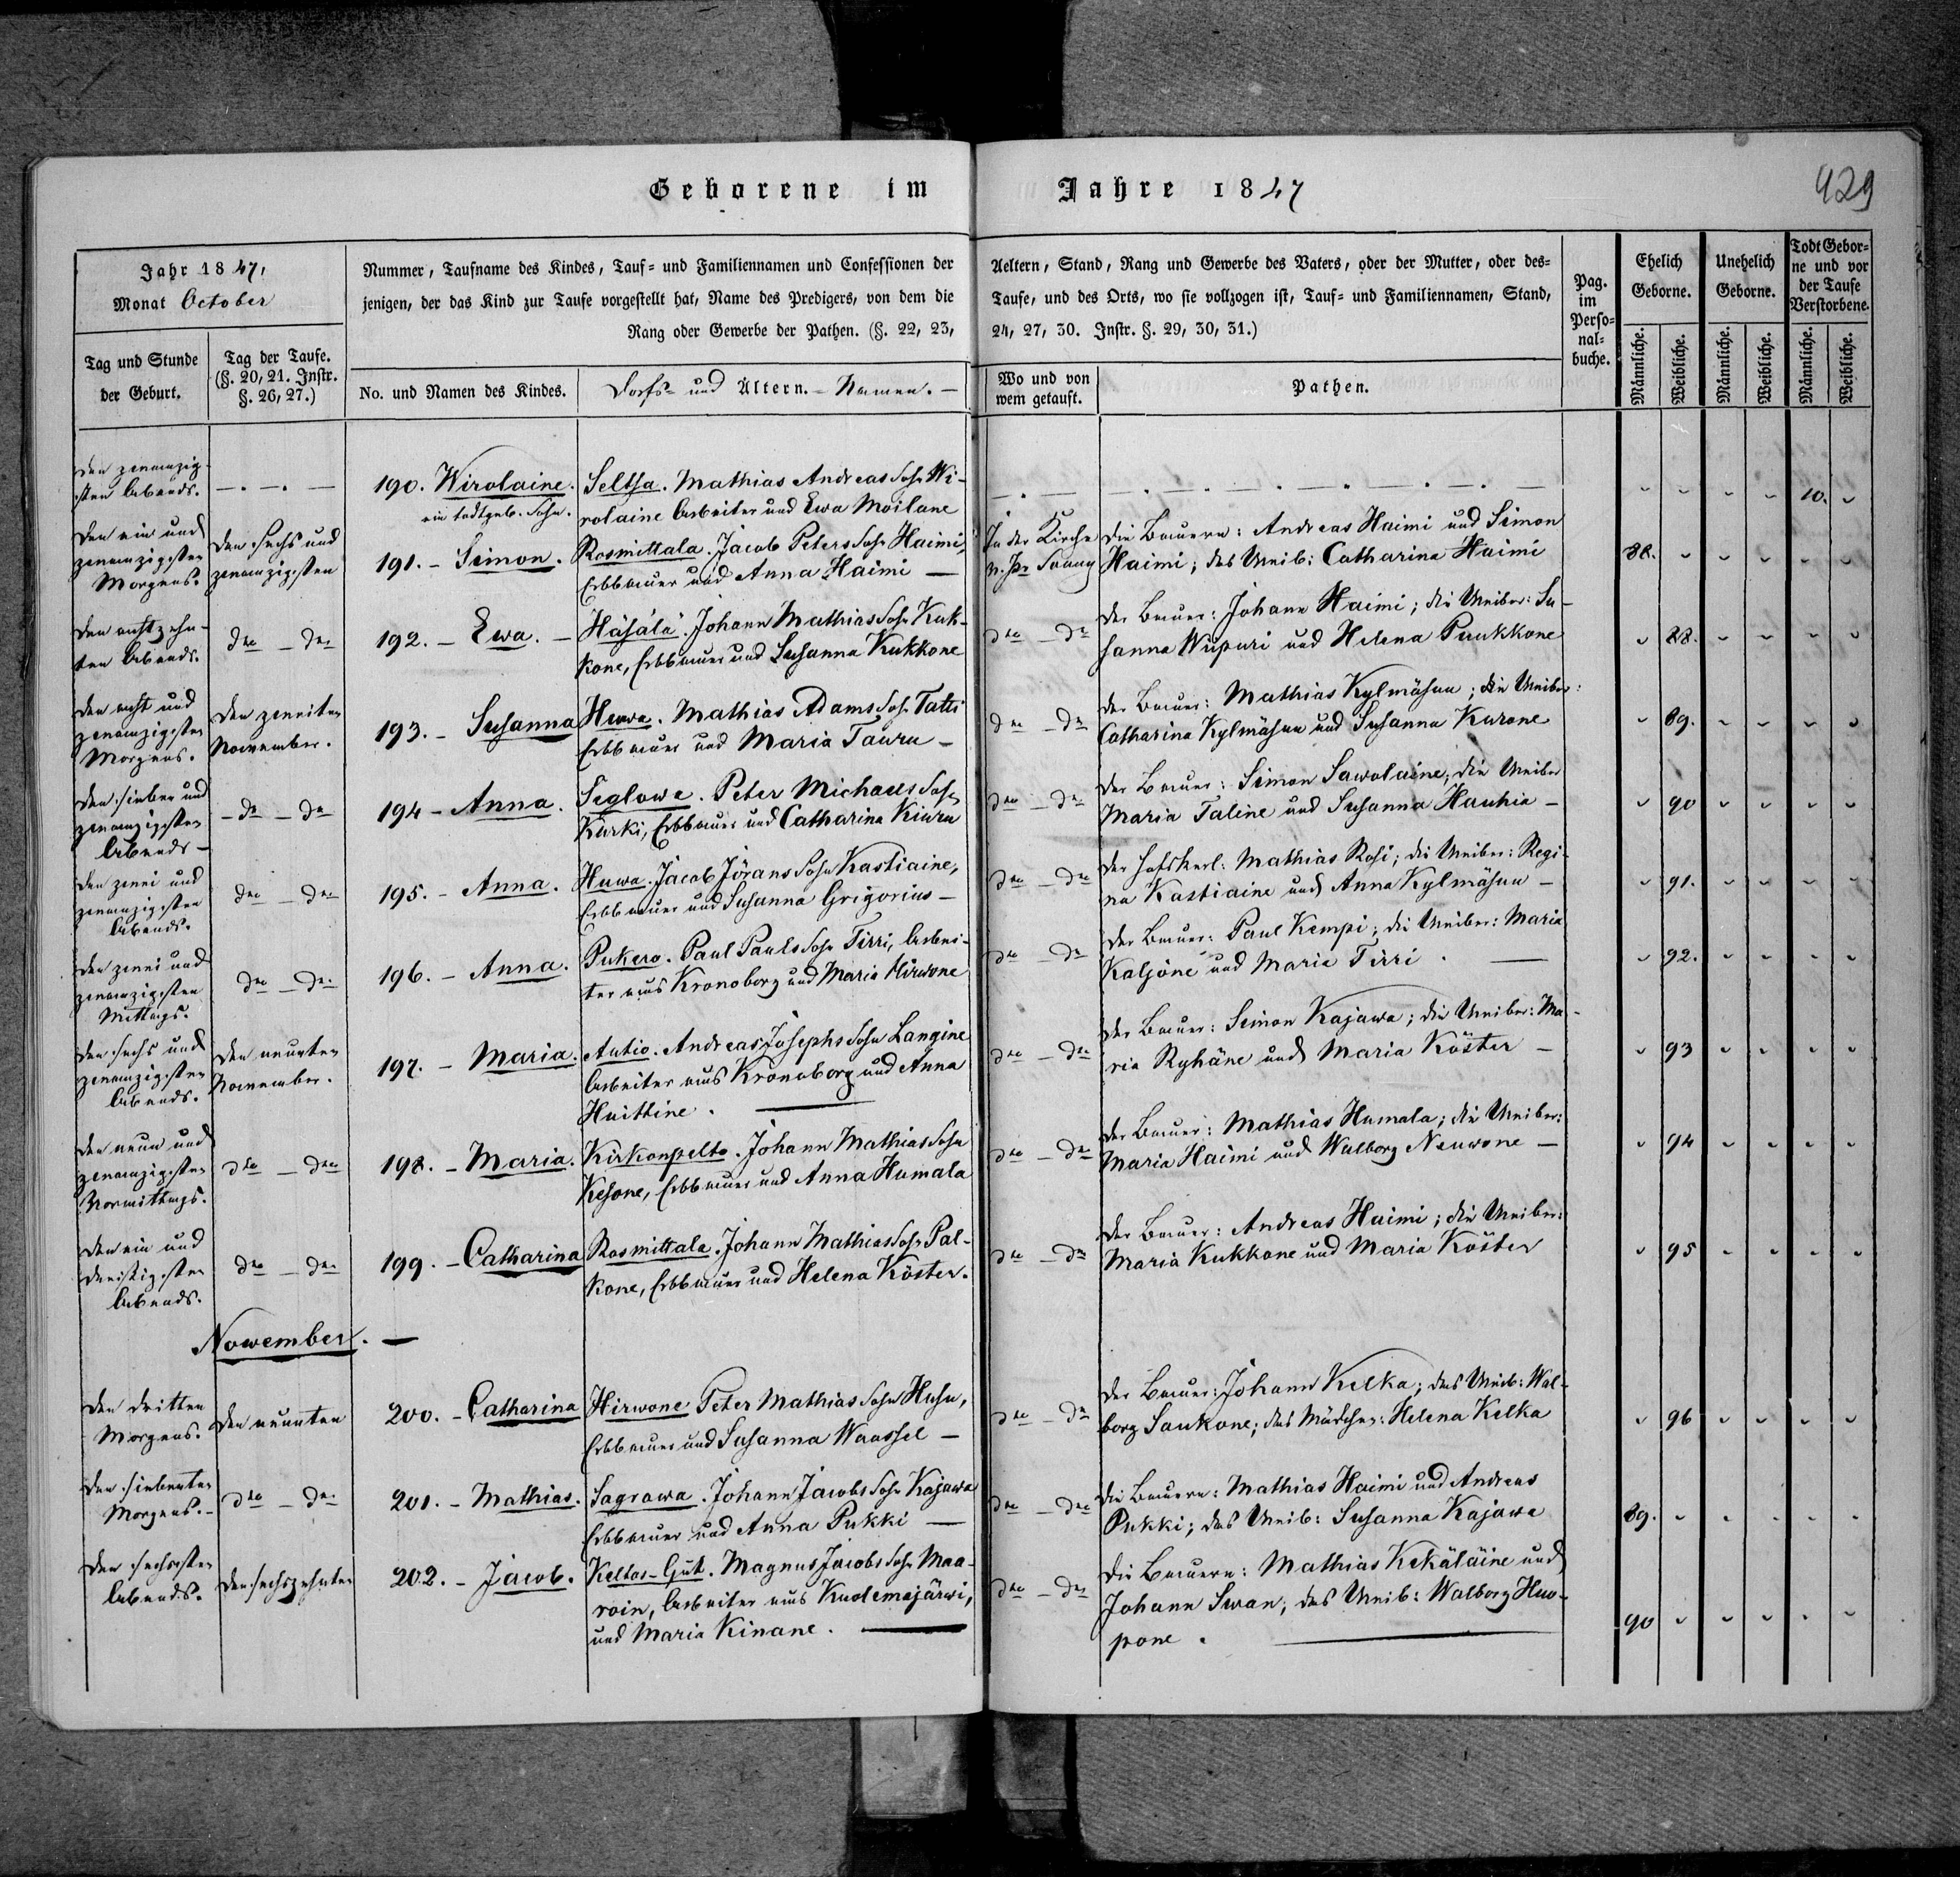 Geborene im Jahre 1847
429
Jahr 1847,
Monat October
Tag und Stunde
der Geburt.
Tag der Taufe.
(§. 20, 21. Instr.
§. 26, 27.)
Nummer, Taufname des Kindes, Tauf- und Familiennamen und Confessionen der
jenigen, der das Kind zur Taufe vorgestellt hat, Name des Predigers, von dem die
Rang oder Gewerbe der Pathen. (§. 22, 23,
No. und Namen des Kindes.
Dorfs- und Ältern.- Namen. -
Aeltern, Stand, Rang und Gewerbe des Vaters, oder der Mutter, oder des-
Taufe, und des Orts, wo sie vollzogen ist, Tauf- und Familiennamen, Stand,
24, 27, 30. Instr. §. 29, 30, 31.)
Wo und von
wem getauft.
Pathen.
Pag.
im
Perso-
nal-
buche.
Ehelich
Geborne.
Unehelich
Geborne.
Todt Gebor-
ne und vor
der Taufe
Verstorbene.
Männliche.
Weibliche.
Männliche.
Weibliche.
Männliche.
Weibliche.
den zwanzig-
sten Abends.
190. Wirolaine.
ein todtgeb. Sohn.
Seltsa. Mathias Andreas Sohn Wi-
rolaine Arbeiter und Ewa Moilane
10.
den ein und
zwanzigsten
Morgens.
den sechs und
zwanzigsten
191. - Simon.
Rosmittala. Jacob Peters Sohn Haimi,
Erbbauer und Anna Haimi -
In der Kirche
die Bauern: Andreas Haimi und Simon
Haimi; das Weib: Catharina Haimi
88.
den achtzehn-
ten Abends.
dto - dto
192. - Ewa. -
Häsälä. Johann Mathias Sohn Kuk-
kone, Erbbauer und Susanna Kukkone
dto - dto
der Bauer: Johann Haimi; die Weiber: Su-
sanna Wiipuri und Helena Puukkone
88.
den acht und
zwanzigsten
Morgens.
den zweiten
November.
193. - Susanna
Huwa. Mathias Adams Sohn Tatti
Erbbauer und Maria Tauru -
dto - dto
der Bauer: Mathias Kylmäsuu; die Weiber:
Catharina Kylmäsuu und Susanna Kurone
89.
den sieben und
zwanzigsten
Abends -
- dto - dto
194 - Anna.
Seglowe. Peter Michaels Sohn
Kurki, Erbbauer und Catharina Kiuru
dto - dto
der Bauer: Simon Sawolaine; die Weiber
Maria Taline und Susanna Hauhia -
90
den zwei und
zwanzigsten
Abends.
dto - dto
195. - Anna.
Huwa. Jacob Jörans Sohn Kastiaine,
Erbbauer und Susanna Grigorius -
dto - dto
der Hofskerl: Mathias Rosi; die Weiber: Regi-
na Kastiaine und Anna Kylmäsuu -
91.
den zwei und
zwanzigsten
Mittags.
dto - dto
196. - Anna.
Pukero. Paul Pauls Sohn Tirri, Arbei-
ter aus Kronoborg und Maria Hirwone
dto - dto
der Bauer: Paul Kempi; die Weiber: Maria
Kaljone und Maria Tirri. -
92.
den sechs und
zwanzigsten
Abends.
den neunten
November.
197. - Maria.
Autio. Andreas Josephs Sohn Langine
Arbeiter aus Kronoborg und Anna
Huittine. -
dto - dto
der Bauer: Simon Kajawa; die Weiber: Ma-
ria Ryhäne und Maria Köster -
93
den neun und
zwanzigsten
Vormittags.
dto - dto
198. - Maria.
Kirkonpelto. Johann Mathias Sohn
Kesone, Erbbauer und Anna Humala
dto - dto
der Bauer: Mathias Humala; die Weiber:
Maria Haimi und Walborg Neuwone -
94
den ein und
dreißigsten
Abends.
dto - dto
199. - Catharina
Rosmittala. Johann Mathias Sohn Pal-
kone, Erbbauer und Helena Köster.
dto - dto
der Bauer: Andreas Haimi; die Weiber:
Maria Kukkone und Maria Köster
95
Nowember. -
den dritten
Morgens.
den neunten
200. - Catharina
Hirwone Peter Mathias Sohn Huhu,
Erbbauer und Susanna Waassel -
dto - dto
der Bauer: Johann Kelka; das Weib: Wal-
borg Saukone; das Mädchen: Helena Kelka
96
den siebenten
Morgens. -
dto - dto
201. - Mathias.
Sagrawa. Johann Jacobs Sohn Kajawa
Erbbauer und Anna Pukki -
dto - dto
die Bauern: Mathias Haimi und Andreas
Pukki; das Weib: Susanna Kajawa
89.
den sechsten
Abends.
den sechszehnten
202. - Jacob.
Keltos-Gut. Magnus Jacobs Sohn Maa-
roin, Arbeiter aus Kuolemajärwi,
und Maria Kinane. -
dto - dto
die Bauern: Mathias Kekäläine und
Johann Swan; das Weib: Walborg Huo-
pone.
90